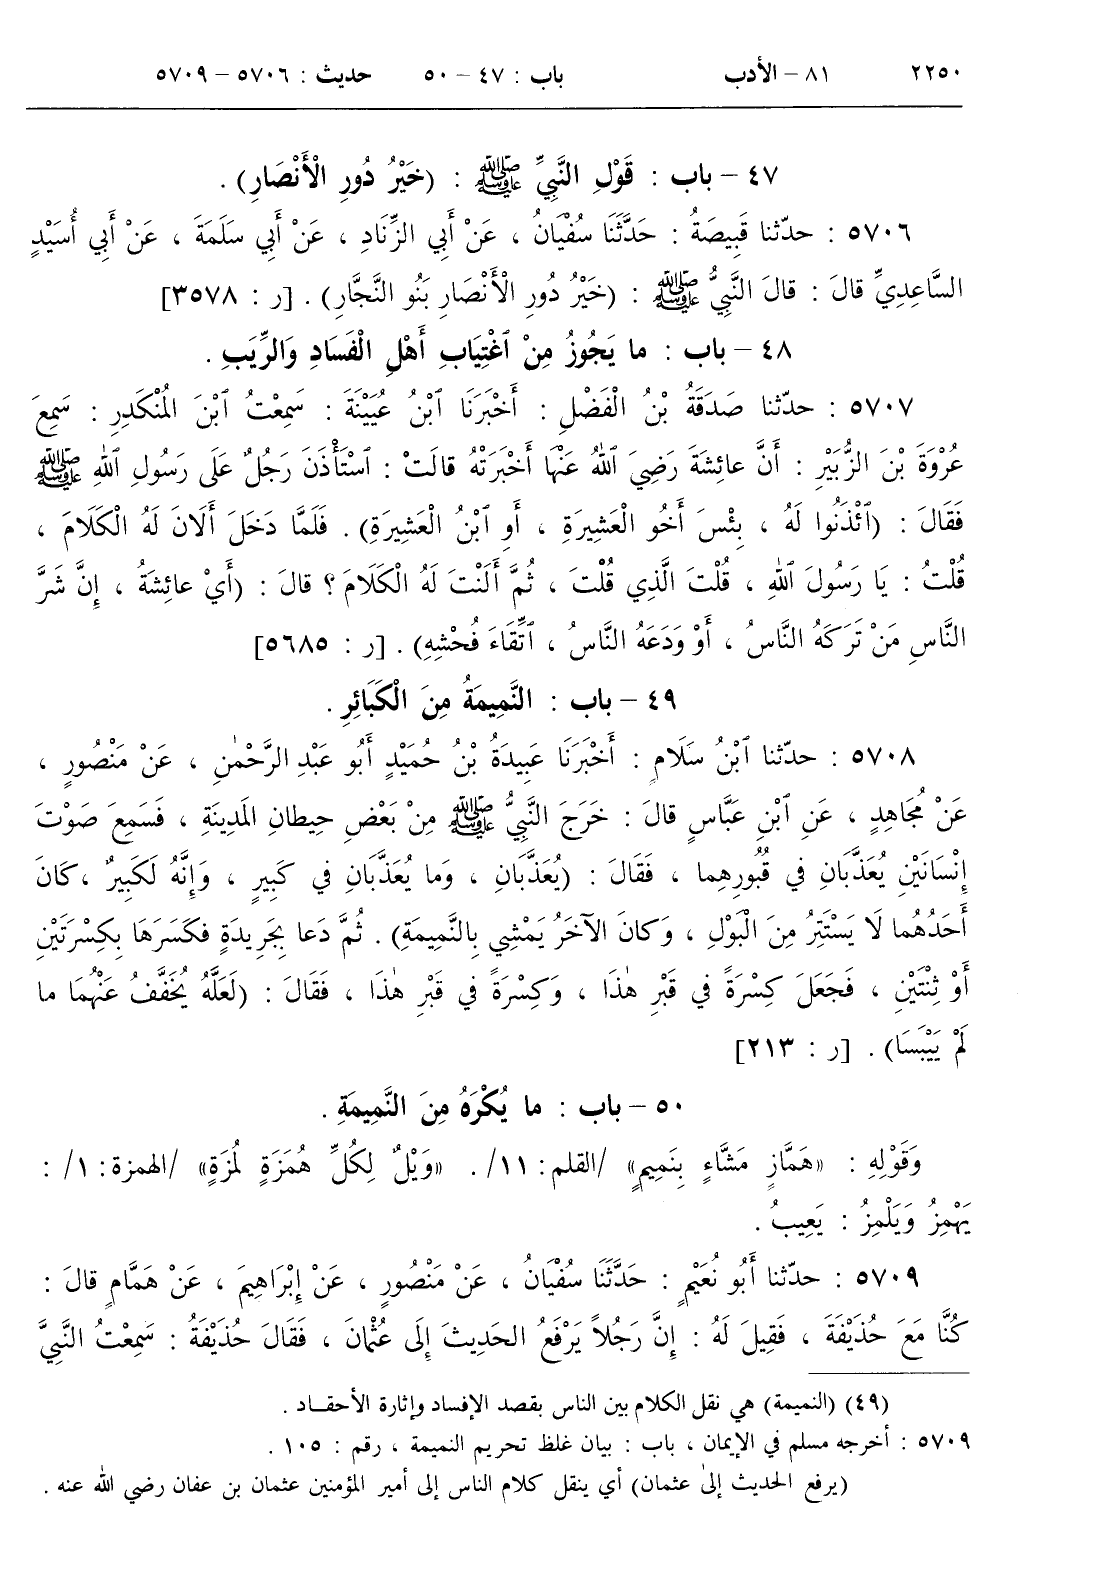 ٢٢٥٠ ٨١ – الأدب باب : ٤٧ – ٥٠ حديث : ٥٧٠٦ – ٥٧٠٩
٤٧ – باب : قَوْلِ النَّبِيِّ ﷺ : (خَيْرُ دُورِ الْأَنْصَارِ) .
٥٧٠٦ : حدّثنا قَبِيصَةُ : حَدَّثَنَا سُفْيَانُ ، عَنْ أَبِي الزِّنَادِ ، عَنْ أَبِي سَلَمَةَ ، عَنْ أَبِي أُسَيْدٍ
السَّاعِدِيِّ قالَ : قالَ النَّبِيُّ ﷺ : (خَيْرُ دُورِ الْأَنْصَارِ بَنُو النَّجَّارِ) . [ر : ٣٥٧٨]
٤٨ – باب : ما يَجُوزُ مِنْ ٱغْتِيَابِ أَهْلِ الْفَسَادِ وَالرِّيَبِ .
٥٧٠٧ : حدّثنا صَدَقَةُ بْنُ الْفَضْلِ : أَخْبَرَنَا ٱبْنُ عُيَيْنَةَ : سَمِعْتُ ٱبْنَ الْمُنْكَدِرِ : سَمِعَ
عُرْوَةَ بْنَ الزُّبَيْرِ : أَنَّ عائِشَةَ رَضِيَ ٱللهُ عَنْهَا أَخْبَرَتْهُ قالَتْ : ٱسْتَأْذَنَ رَجُلٌ عَلَى رَسُولِ ٱللهِ ﷺ
فَقَالَ : (ٱئْذَنُوا لَهُ ، بِئْسَ أَخُو الْعَشِيرَةِ ، أَوِ ٱبْنُ الْعَشِيرَةِ) . فَلَمَّا دَخَلَ أَلَانَ لَهُ الْكَلَامَ ،
قُلْتُ : يَا رَسُولَ ٱللهِ ، قُلْتَ الَّذِي قُلْتَ ، ثُمَّ أَلَنْتَ لَهُ الْكَلَامَ ؟ قالَ : (أَيْ عائِشَةُ ، إِنَّ شَرَّ
النَّاسِ مَنْ تَرَكَهُ النَّاسُ ، أَوْ وَدَعَهُ النَّاسُ ، ٱتِّقَاءَ فُحْشِهِ) . [ر : ٥٦٨٥]
٤٩ – باب : النَّمِيمَةُ مِنَ الْكَبَائِرِ .
٥٧٠٨ : حدّثنا ٱبْنُ سَلَامٍ : أَخْبَرَنَا عَبِيدَةُ بْنُ حُمَيْدٍ أَبُو عَبْدِ الرَّحْمٰنِ ، عَنْ مَنْصُورٍ ،
عَنْ مُجَاهِدٍ ، عَنِ ٱبْنِ عَبَّاسٍ قالَ : خَرَجَ النَّبِيُّ ﷺ مِنْ بَعْضِ حِيطَانِ المَدِينَةِ ، فَسَمِعَ صَوْتَ
إِنْسَانَيْنِ يُعَذَّبَانِ في قُبُورِهِما ، فَقَالَ : (يُعَذَّبَانِ ، وَما يُعَذَّبَانِ في كَبِيرٍ ، وَإِنَّهُ لَكَبِيرٌ ، كَانَ
أَحَدُهُما لَا يَسْتَتِرُ مِنَ الْبَوْلِ ، وَكانَ الآخَرُ يَمْشِي بِالنَّمِيمَةِ) . ثُمَّ دَعا بِجَرِيدَةٍ فَكَسَرَهَا بِكِسْرَتَيْنِ
أَوْ ثِنْتَيْنِ ، فَجَعَلَ كِسْرَةً في قَبْرِ هٰذَا ، وَكِسْرَةً في قَبْرِ هٰذَا ، فَقَالَ : (لَعَلَّهُ يُخَفَّفُ عَنْهُمَا ما
لَمْ يَيْبَسَا) . [ر : ٢١٣]
٥٠ – باب : ما يُكْرَهُ مِنَ النَّمِيمَةِ .
وَقَوْلِهِ : «هَمَّازٍ مَشَّاءٍ بِنَمِيمٍ» /القلم: ١١/ . «وَيْلٌ لِكُلِّ هُمَزَةٍ لُمَزَةٍ» /الهمزة: ١/ :
يَهْمِزُ وَيَلْمِزُ : يَعِيبُ .
٥٧٠٩ : حدّثنا أَبُو نُعَيْمٍ : حَدَّثَنَا سُفْيَانُ ، عَنْ مَنْصُورٍ ، عَنْ إِبْرَاهِيمَ ، عَنْ هَمَّامٍ قالَ :
كُنَّا مَعَ حُذَيْفَةَ ، فَقِيلَ لَهُ : إِنَّ رَجُلاً يَرْفَعُ الحَدِيثَ إِلَى عُثْمانَ ، فَقَالَ حُذَيْفَةُ : سَمِعْتُ النَّبِيَّ
(٤٩) (النميمة) هي نقل الكلام بين الناس بقصد الإفساد وإثارة الأحقاد .
٥٧٠٩ : أخرجه مسلم في الإيمان ، باب : بيان غلظ تحريم النميمة ، رقم : ١٠٥ .
(يرفع الحديث إلىٰ عثمان) أي ينقل كلام الناس إلى أمير المؤمنين عثمان بن عفان رضي الله عنه .